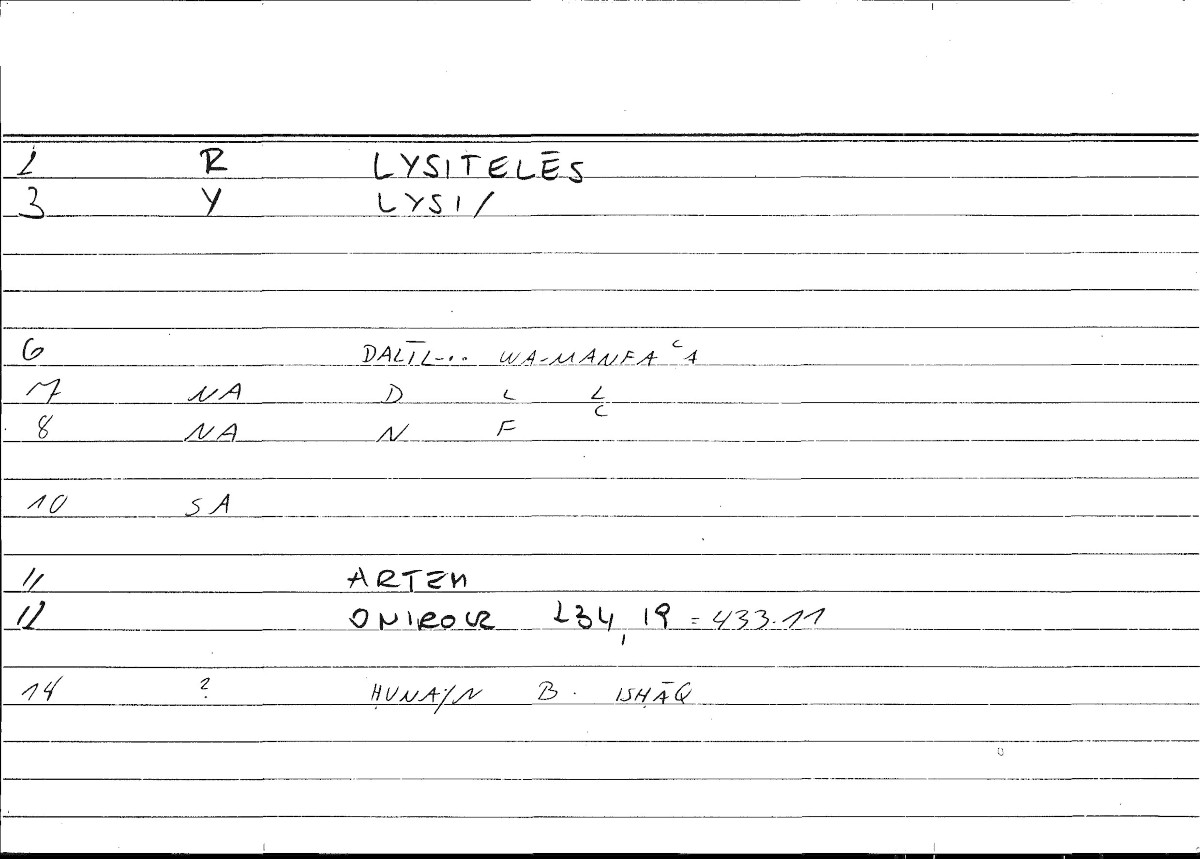 1 R LYSITELĒS
3 Y LYSI/
6 DALĪL... WA-MANFAʿA
7 NA D L L
8 NA N F ʿ
10 SA
11 ARTEM
12 ONIROCR 234,19 = 433.11
14 ? ḤUNAYN B. ISḤĀQ